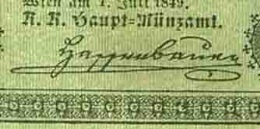 Wien am 1. Juli 1849.
K. K. Haupt=Münzamt.
Hassenbauer